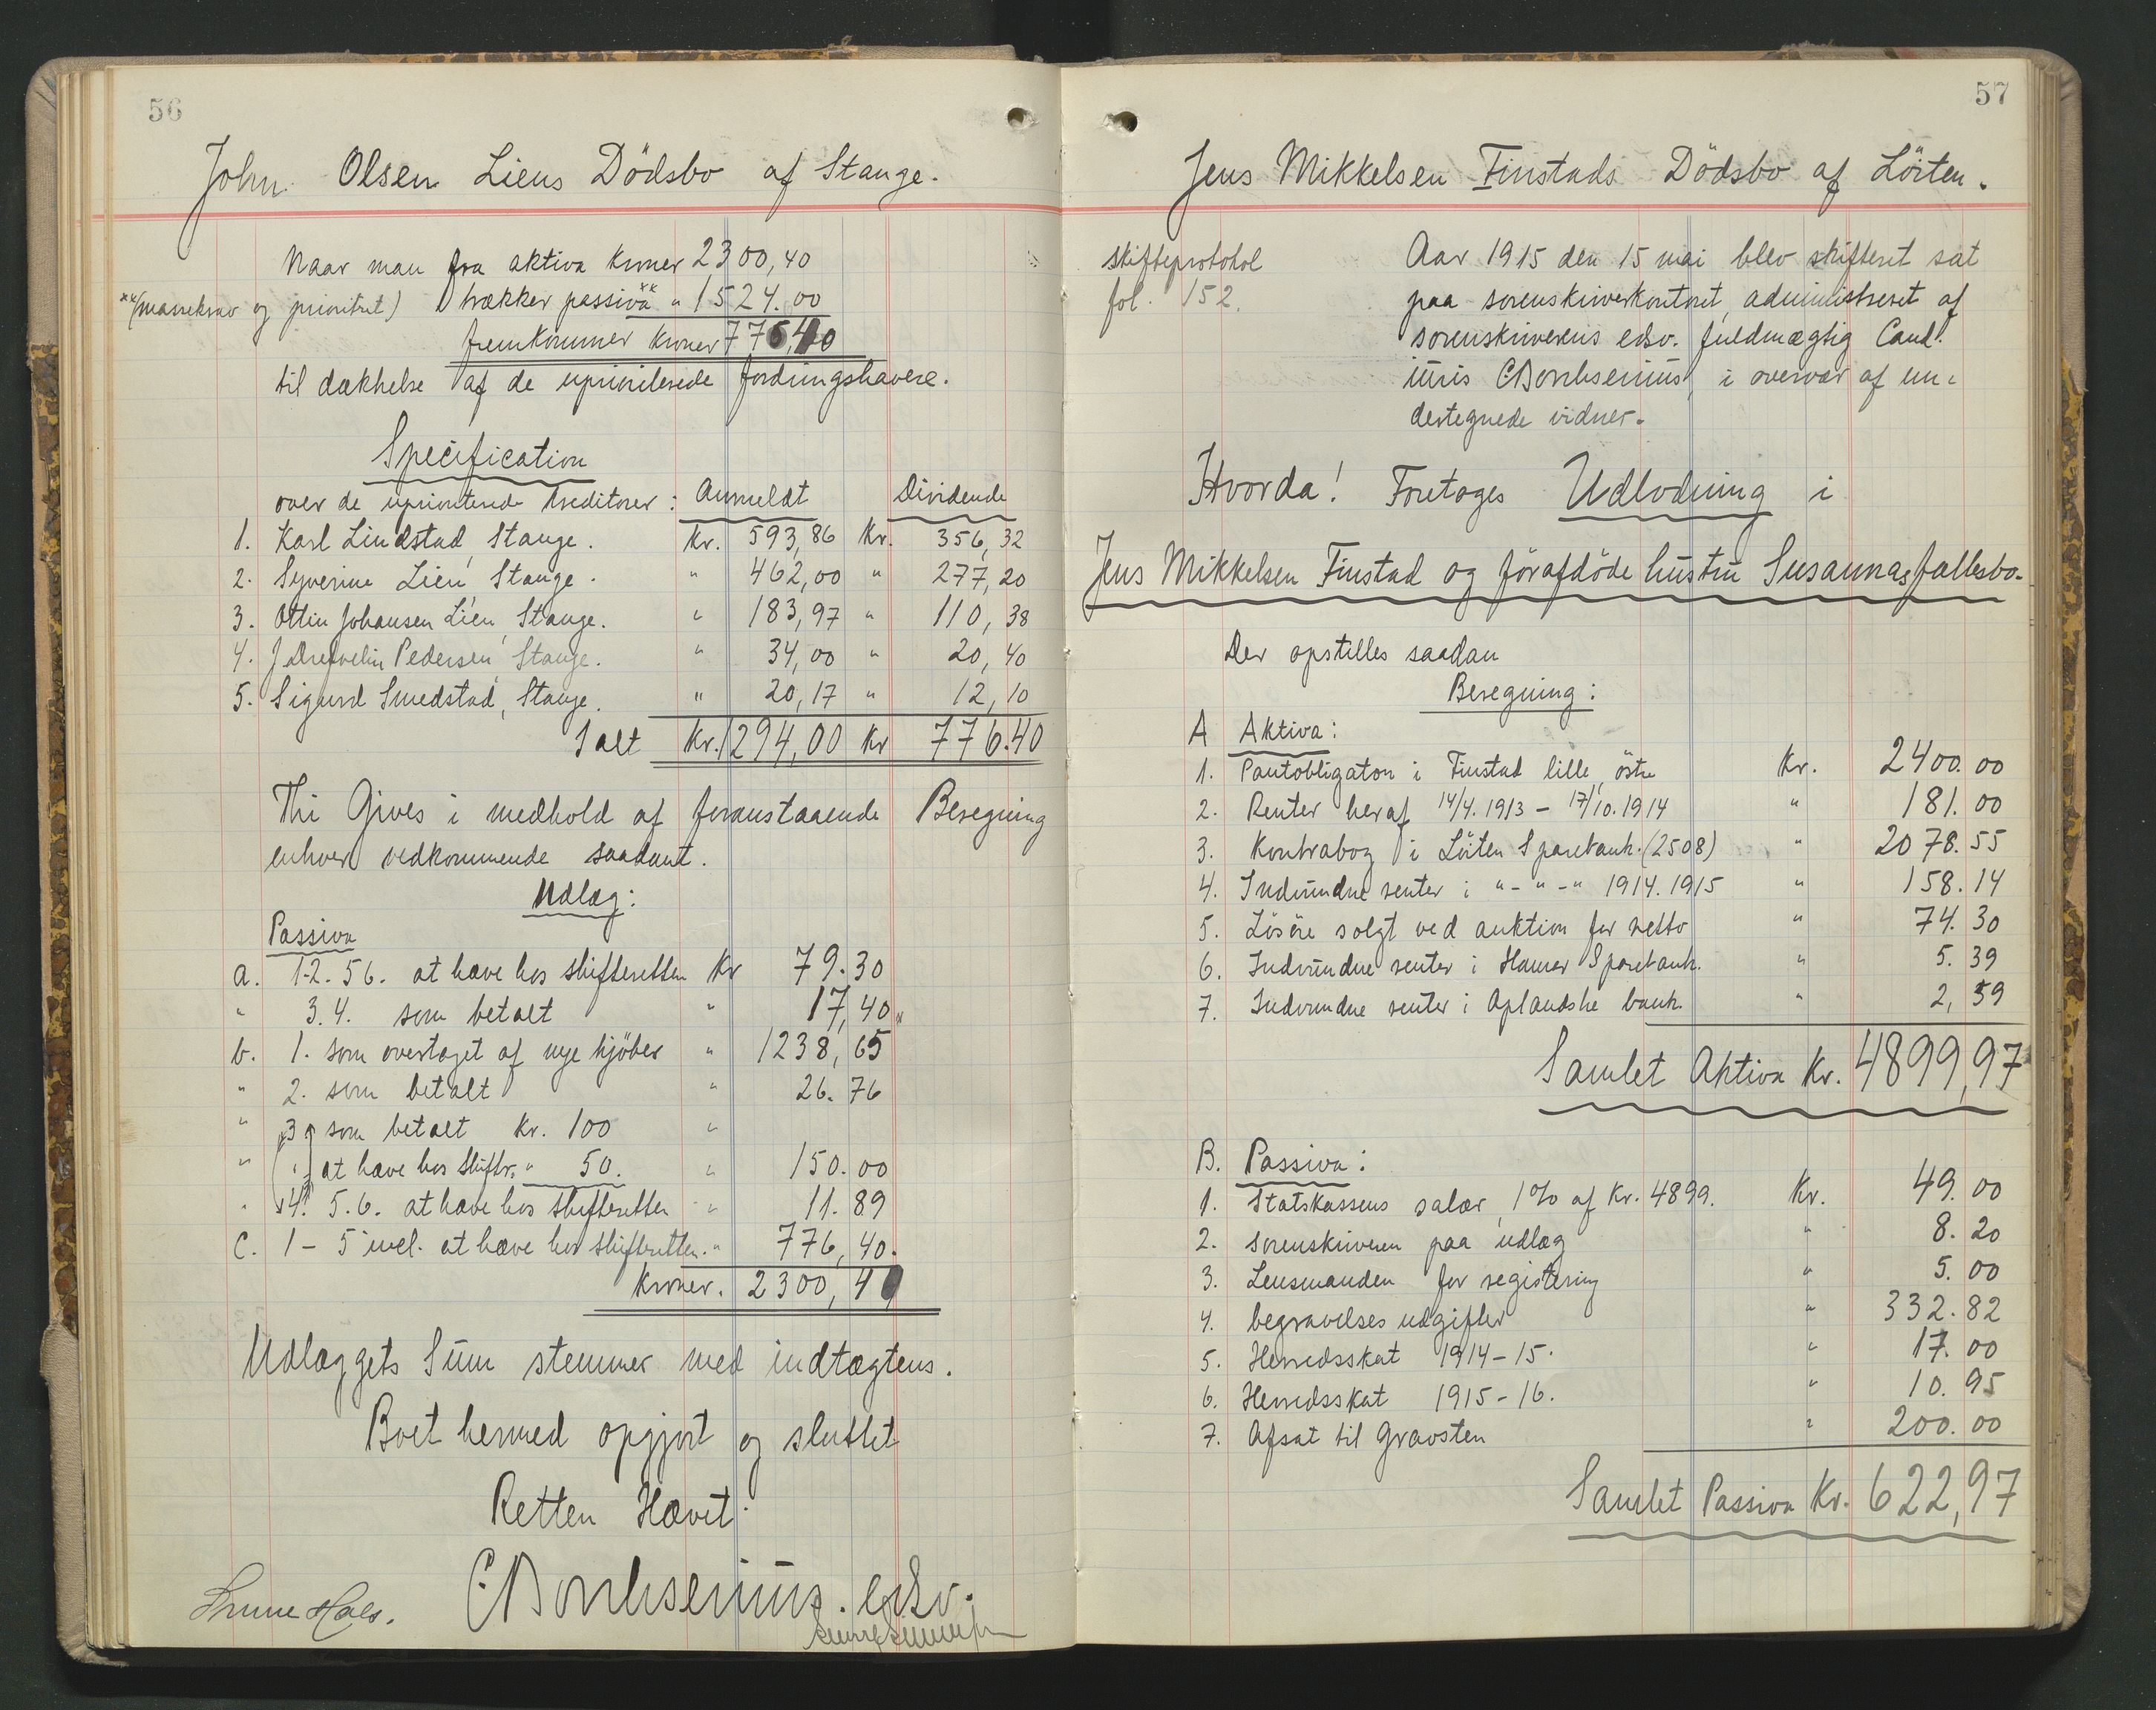 56
John Olsen Liens Dödsbo af Stange.
Naar man fra aktiva Kroner 2300,40
**(massekrav og prioritet) trækker passiva** " 1524.00
fremkommer Kroner 776,40
til dækkelse af de uprioriterede fordringshavere.
Specification
over de uprioriterede Kreditorer: Anmeldt Dividende
1. Karl Lindstad, Stange. Kr. 593,86 Kr. 356,32
2. Syverine Lien, Stange. " 462,00 " 277,20
3. Ottin Johansen Lien, Stange. " 183,97 " 110,38
4. J Pedersen, Stange. " 34,00 " 20,40
5. Sigurd Smedstad, Stange. " 20,17 " 12,10
I alt Kr. 1294,00 Kr 776.40
Thi Gives i medhold af foranstaaende Beregning
enhver vedkommende saadant.
Udlæg:
Passiva
a. 1-2. 56. at hæve hos skifteretten Kr 79.30
" 3.4. som betalt " 17,40
b. 1. som overtaget af nye kjöber " 1238,65
" 2. som betalt " 26.76
" 3 som betalt Kr. 100 "
" at hæve hos skiftr. " 50. " 150.00
" 4. 5.6. at hæve hos skifteretten " 11.89
C. 1-5 incl. at hæve hos skifteretten. " 776,40.
Kroner. 2300,40
Udlæggets Sum stemmer med indtægtens.
Boet hermed opgjort og sluttet
Retten Hævet.
C. Borchsenius. edsv.
57
Jens Mikkelsen Finstads Dödsbo af Löiten.
Skifteprotokol
fol. 152.
Aar 1915 den 15 mai blev skifteret sat
paa sorenskriverkontoret, administreret af
sorenskriverens edsv. fuldmægtig Cand.
iuris C Borchsenius, i overvær af un-
dertegnede vidner.
Hvorda! Foretoges Udlodning i
Jens Mikkelsen Finstad og förafdöde hustru Susannas fællesbo.
Der opstilles saadan
Beregning:
A Aktiva:
1. Pantobligation i Finstad lille, östre Kr. 2400.00
2. Renter heraf 14/4.1913 - 17/10.1914 " 181.00
3. Kontrabog i Löiten Sparebank. (2508) " 2078.55
4. Indvundne renter i "-"-" 1914.1915 " 158.14
5. Lösöre solgt ved auktion for netto " 74.30
6. Indvundne renter i Hamar Sparebank. " 5.39
7. Indvundne renter i Oplandske bank. " 2,59
Samlet Aktiva Kr. 4899,97
B. Passiva:
1. Statskassens salær, 1% af Kr. 4899. Kr. 49.00
2. Sorenskriveren paa udlæg " 8.20
3. Lensmanden for registering " 5.00
4. begravelses udgifter " 332.82
5. Herredsskat 1914-15. " 17.00
6. Herredsskat 1915-16. " 10.95
7. Afsat til Gravsten " 200.00
Samlet Passiva Kr. 622,97